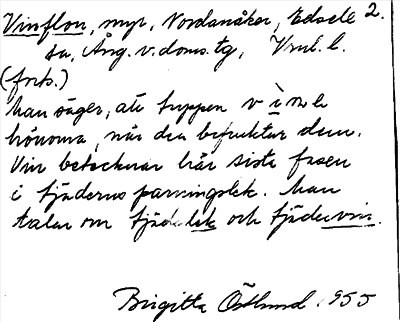 Vinflon, myr, Nordanåker, Edsele 2.
sn, Ång. v. doms. tg, Vnl. l.
(forts.)
Man säger, att tuppen vinle
hönorna, när den befruktar dem.
Vin betecknar här sista fasen
i tjäderns parningslek. Man
talar om tjäderlek och tjädervin.
Birgitta Östlund. 1955